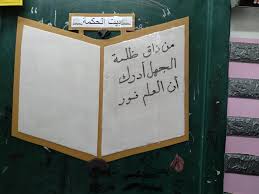 بيت الحكمة
من ذاق ظلمة
الجهل أدرك
أن العلم نور